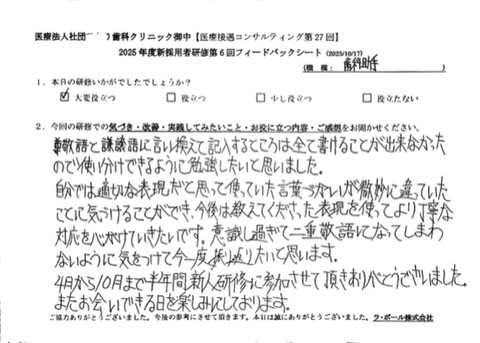 医療法人社団 歯科クリニック御中【医療接遇コンサルティング第27回】
2025年度新採用者研修第6回フィードバックシート (2025/10/17)
(職種: 歯科助手 )
1.本日の研修いかがでしたでしょうか?
☑ 大変役立つ □ 役立つ □ 少し役立つ □ 役立たない
2.今回の研修での気づき・改善・実践してみたいこと・お役に立つ内容・ご感想をお聞かせください。
尊敬語と謙譲語に言い換えて記入するところは全て書けることが出来なかった
ので使い分けできるように勉強したいと思いました。
自分では適切な表現だと思って使っていた言葉づかいが微妙に違っていた
ことに気づけることができ、今後は教えてくださった表現を使ってより丁寧な
対応を心がけていきたいです。意識し過ぎて二重敬語になってしまわ
ないように気をつけて今一度振り返りたいと思います。
4月から10月まで半年間新人研修に参加させて頂きありがとうございました。
またお会いできる日を楽しみにしております。
ご協力ありがとうございました。今後の参考にさせて頂きます。本日は誠にありがとうございました。ラ・ポール株式会社